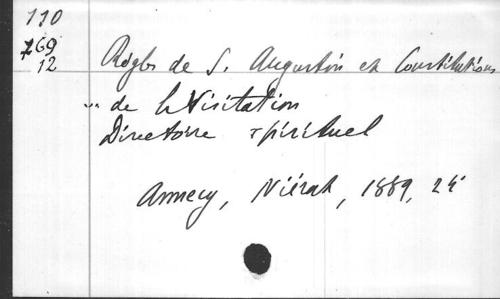 110
769
12
Règles de S. Augustin et Constitutions
... de la Visitation
Directoire spirituel
Annecy, Niérat, 1889, 24°